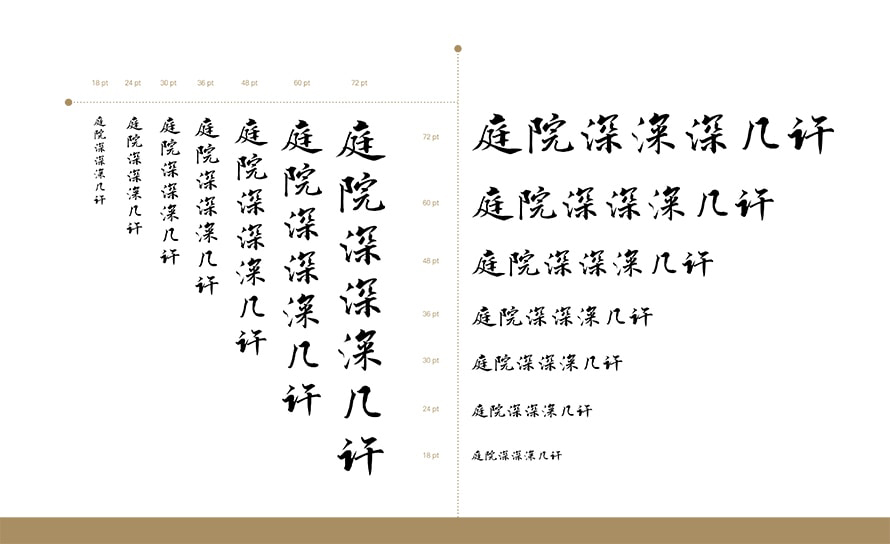 18 pt 24 pt 30 pt 36 pt 48 pt 60 pt 72 pt
庭院深深深几许
庭院深深深几许
庭院深深深几许
庭院深深深几许
庭院深深深几许
庭院深深深几许
庭院深深深几许
72 pt 庭院深深深几许
60 pt 庭院深深深几许
48 pt 庭院深深深几许
36 pt 庭院深深深几许
30 pt 庭院深深深几许
24 pt 庭院深深深几许
18 pt 庭院深深深几许